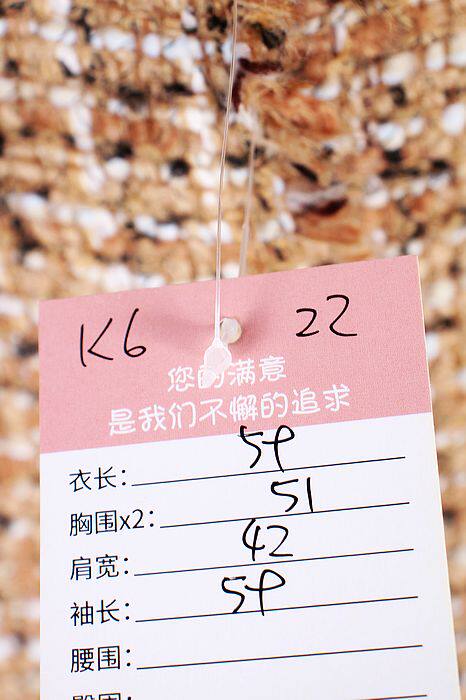 K6 22
您的满意
是我们不懈的追求
衣长: 59
胸围x2: 51
肩宽: 42
袖长: 59
腰围: